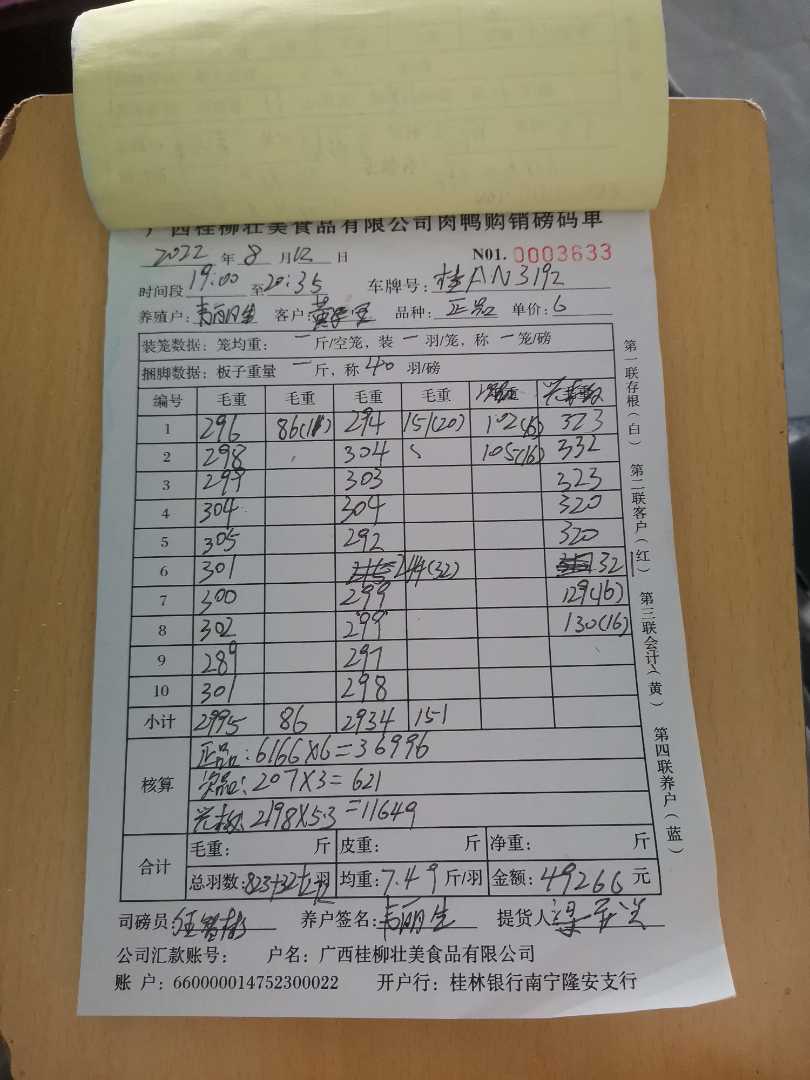 广西桂柳壮美食品有限公司肉鸭购销磅码单
2022 年 8 月 12 日 N01. 0003633
时间段 19:00 至 20:35 车牌号: 桂AN3192
养殖户: 韦丽生 客户: 品种: 正品 单价: 6
装笼数据: 笼均重: 一 斤/空笼, 装 一 羽/笼, 称 一 笼/磅
捆脚数据: 板子重量 一 斤, 称 40 羽/磅
编号 毛重 毛重 毛重 毛重
1 296 86(11) 294 151(20) 102(16) 323
2 298 304 105(16) 332
3 299 303 323
4 304 304 320
5 305 292 320
6 301 244(32) 132
7 300 299 129(16)
8 302 299 130(16)
9 289 297
10 301 298
小计 2995 86 2934 151
核算 正品: 6166×6=36996
次品: 207×3=621
2198×5.3=11649
合计 毛重: 斤 皮重: 斤 净重: 斤
总羽数: 823+32 羽 均重: 7.49 斤/羽 金额: 49266 元
司磅员: 养户签名: 韦丽生 提货人
公司汇款账号: 户名: 广西桂柳壮美食品有限公司
账 户: 660000014752300022 开户行: 桂林银行南宁隆安支行
第一联存根(白) 第二联客户(红) 第三联会计(黄) 第四联养户(蓝)